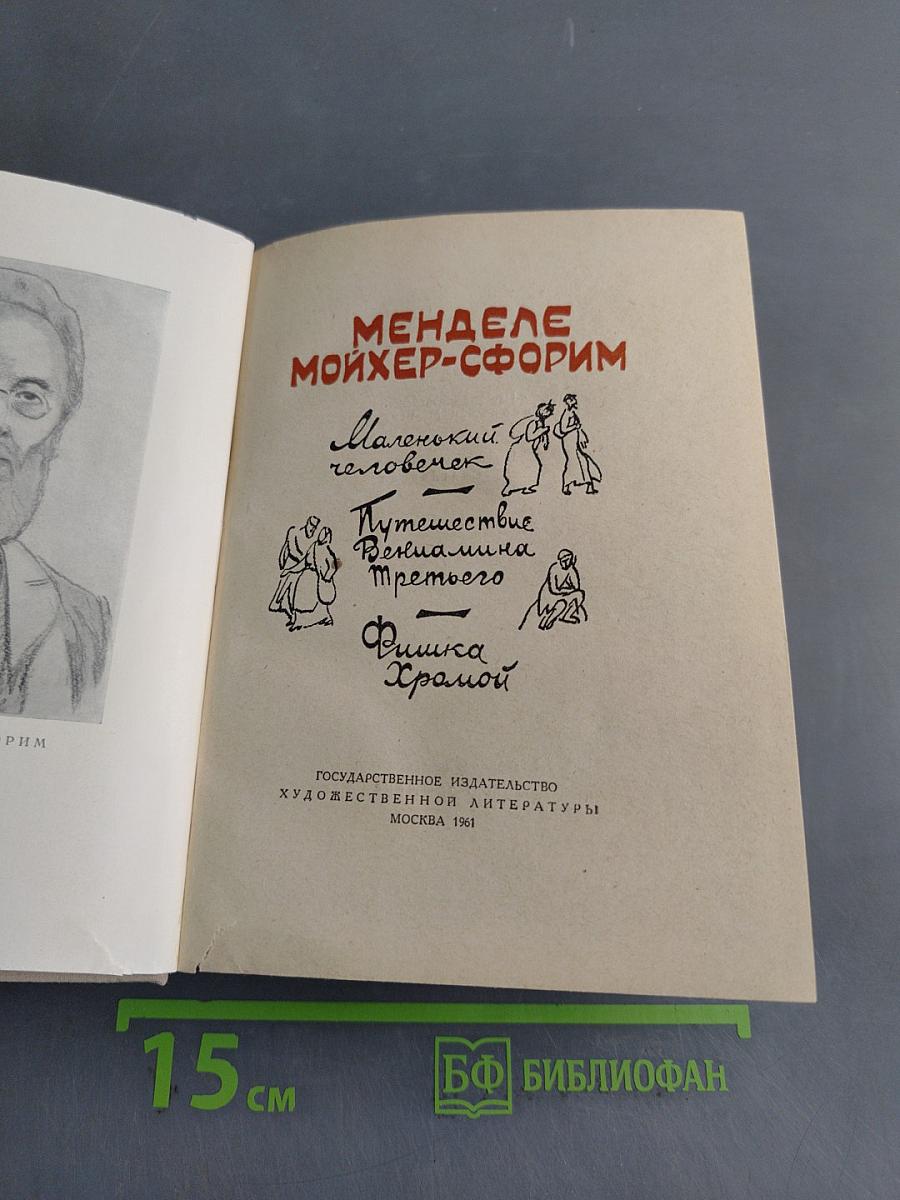 ОРИМ
МЕНДЕЛЕ
МОЙХЕР-СФОРИМ
Маленький
человечек
Путешествие
Вениамина
Третьего
Фишка
Хромой
ГОСУДАРСТВЕННОЕ ИЗДАТЕЛЬСТВО
ХУДОЖЕСТВЕННОЙ ЛИТЕРАТУРЫ
МОСКВА 1961
15 см
БФ БИБЛИОФАН